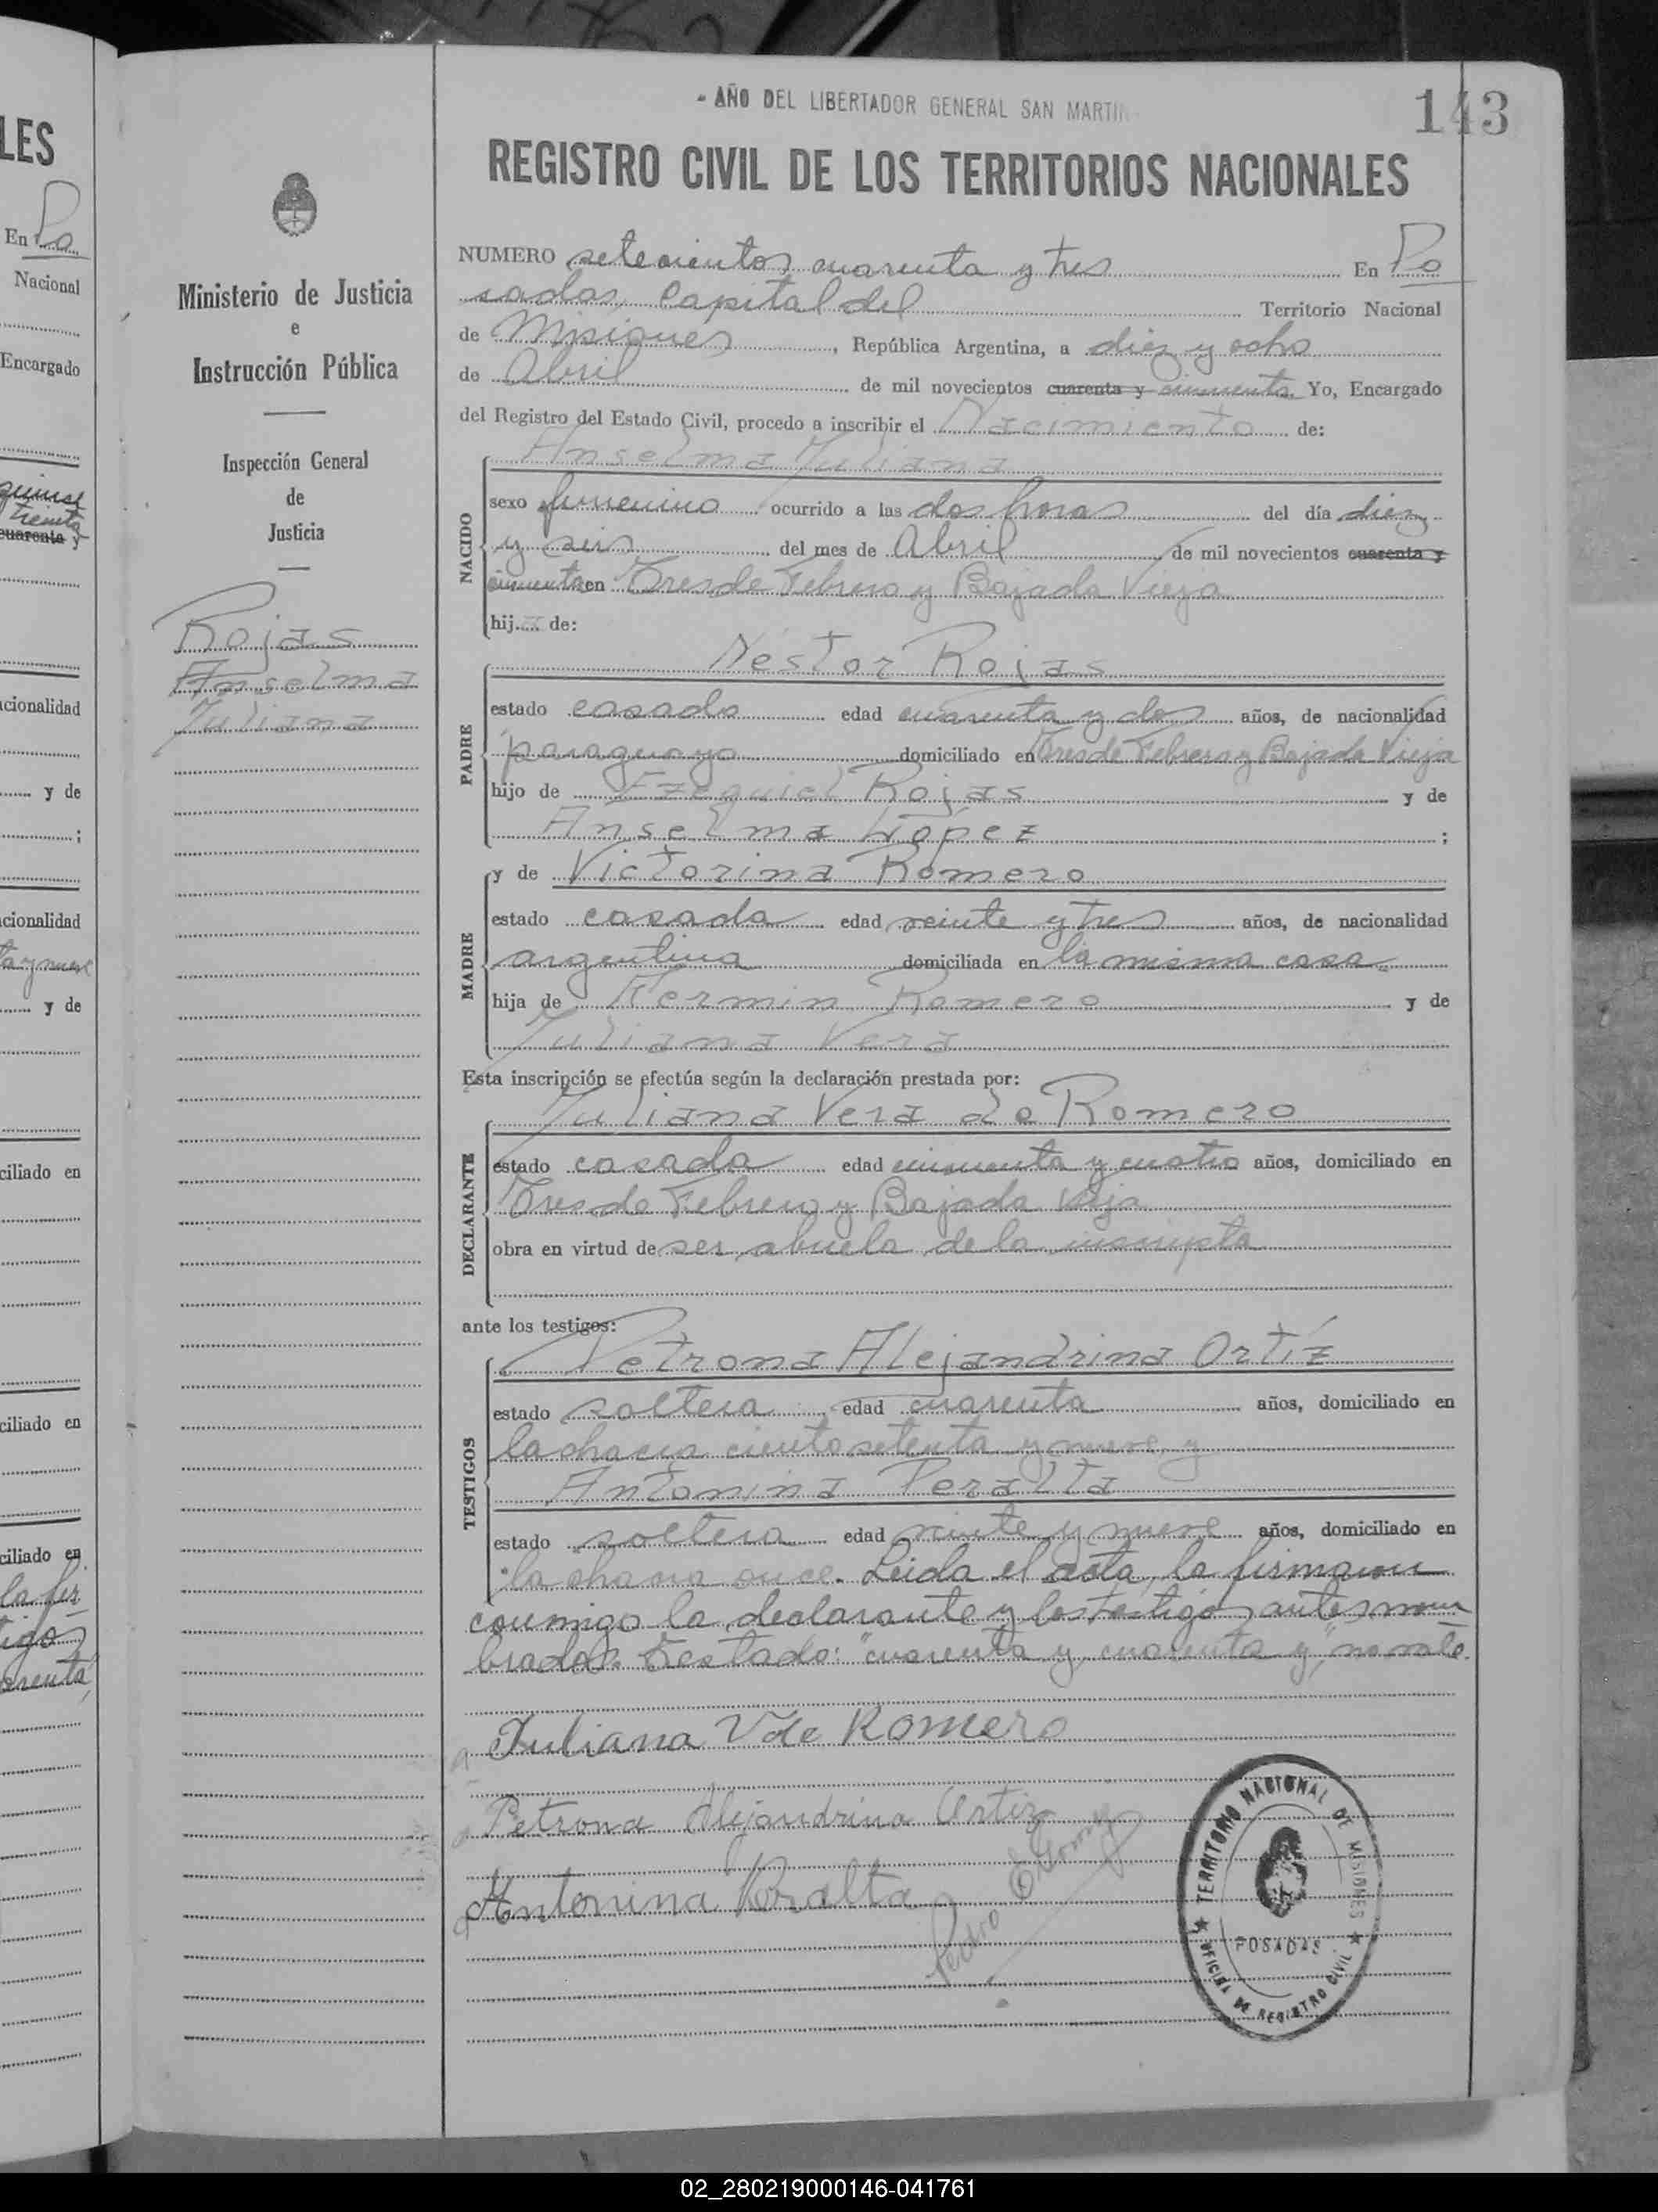 - AÑO DEL LIBERTADOR GENERAL SAN MARTIN
143
REGISTRO CIVIL DE LOS TERRITORIOS NACIONALES
LES
En Po
Nacional
Encargado
quinse
treinta
cuarenta y
acionalidad
y de
;
acionalidad
ta y nueve
y de
ciliado en
ciliado en
ciliado en
la fir
tigos
arenta
Ministerio de Justicia
e
Instrucción Pública
Inspección General
de
Justicia
Rojas
Anselma
Juliana
NUMERO setecientos cuarenta y tres En Po
sadas, Capital del Territorio Nacional
de Misiones, República Argentina, a diez y ocho
de Abril de mil novecientos cuarenta y cincuenta Yo, Encargado
del Registro del Estado Civil, procedo a inscribir el Nacimiento de:
NACIDO
Anselma Juliana
sexo femenino ocurrido a las dos horas del día diez
y seis del mes de Abril de mil novecientos cuarenta y
cincuenta en Tres de Febrero y Bajada Vieja
hija de:
PADRE
Néstor Rojas
estado casado edad cuarenta y dos años, de nacionalidad
paraguayo domiciliado en Tres de Febrero y Bajada Vieja
hijo de Ezequiel Rojas y de
Anselma López ;
MADRE
y de Victorina Romero
estado casada edad veinte y tres años, de nacionalidad
argentina domiciliada en la misma casa
hija de Fermin Romero y de
Juliana Vera
Esta inscripción se efectúa según la declaración prestada por:
DECLARANTE
Juliana Vera de Romero
estado casada edad cincuenta y cuatro años, domiciliado en
Tres de Febrero y Bajada Vieja
obra en virtud de ser abuela de la inscripta
ante los testigos:
TESTIGOS
Petrona Alejandrina Ortíz
estado soltera edad cuarenta años, domiciliado en
la chacra ciento setenta y nueve, y
Antonina Peralta
estado soltera edad veinte y nueve años, domiciliado en
la chacra once. Leida el acta, la firmaron
conmigo la declarante y los testigos antes nom
brados. Testado: "cuarenta y, cuarenta y," no vale.
Juliana V de Romero
Petrona Alejandrina Ortiz
Antonina Peralta
Pedro E. Gomez
TERRITORIO NACIONAL DE MISIONES
POSADAS
OFICINA DE REGISTRO CIVIL
02_280219000146-041761